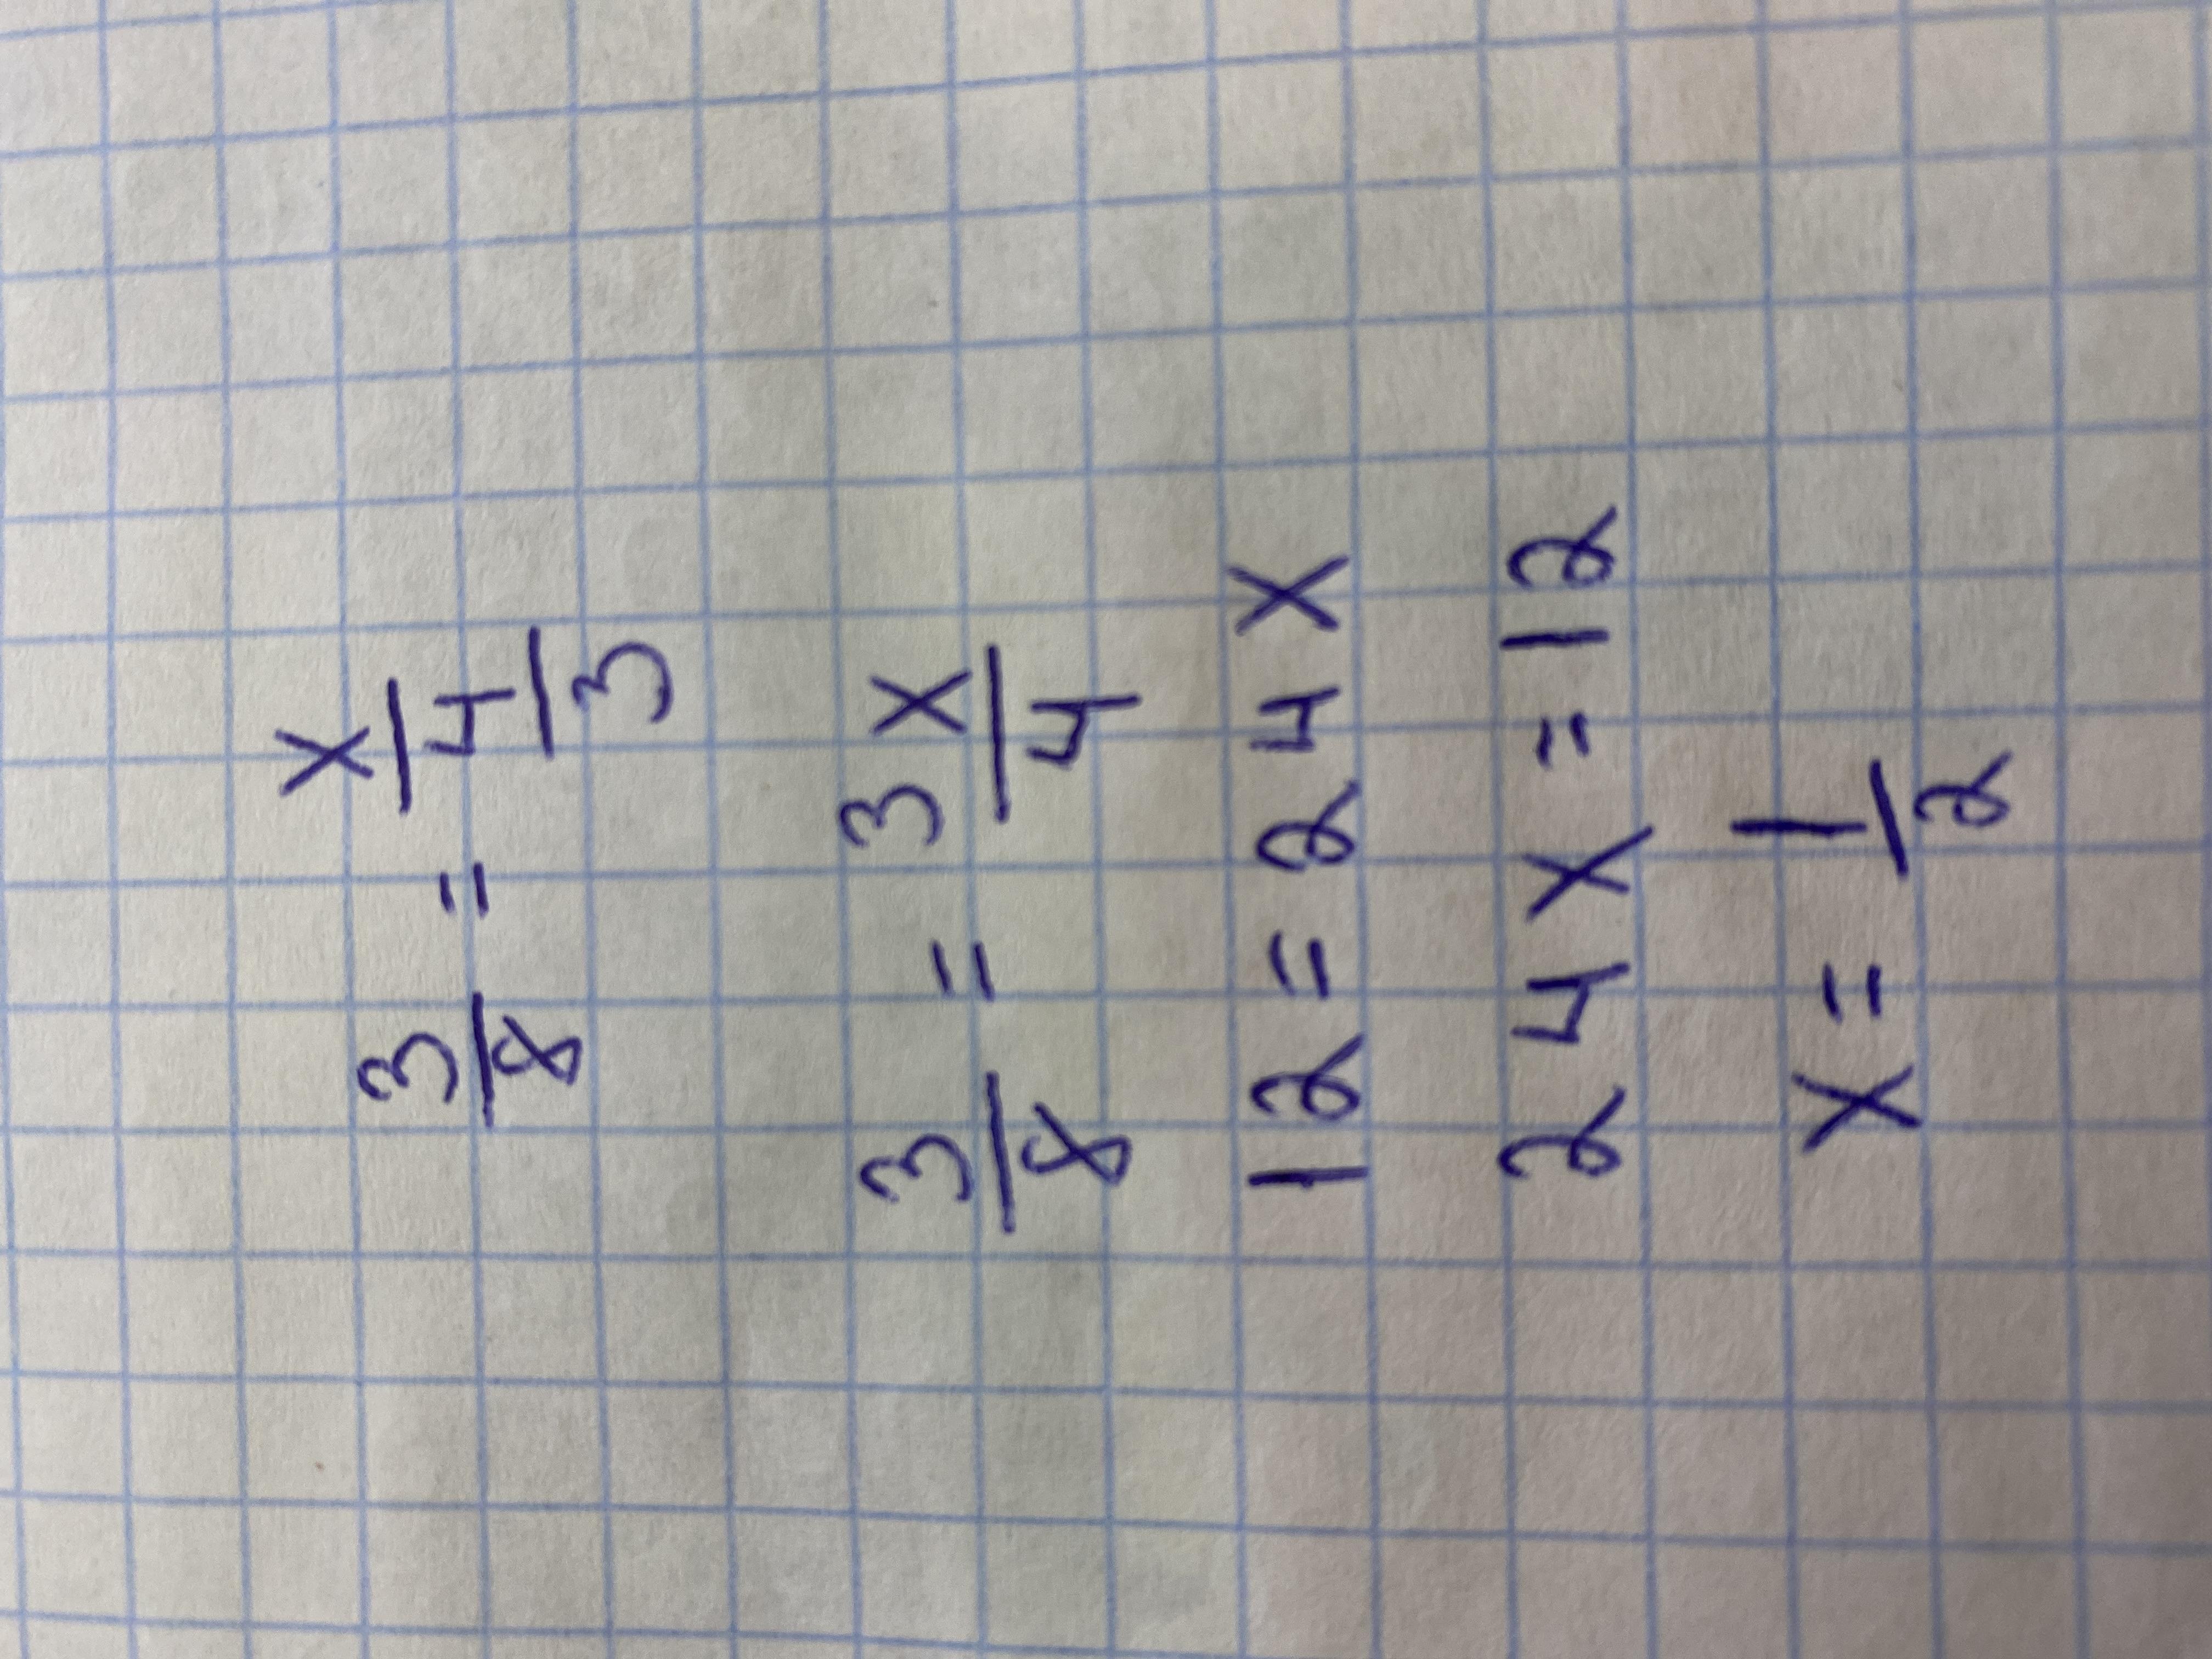 3/8 = x/(4/3)
3/8 = 3x/4
12 = 24x
24x = 12
x = 1/2